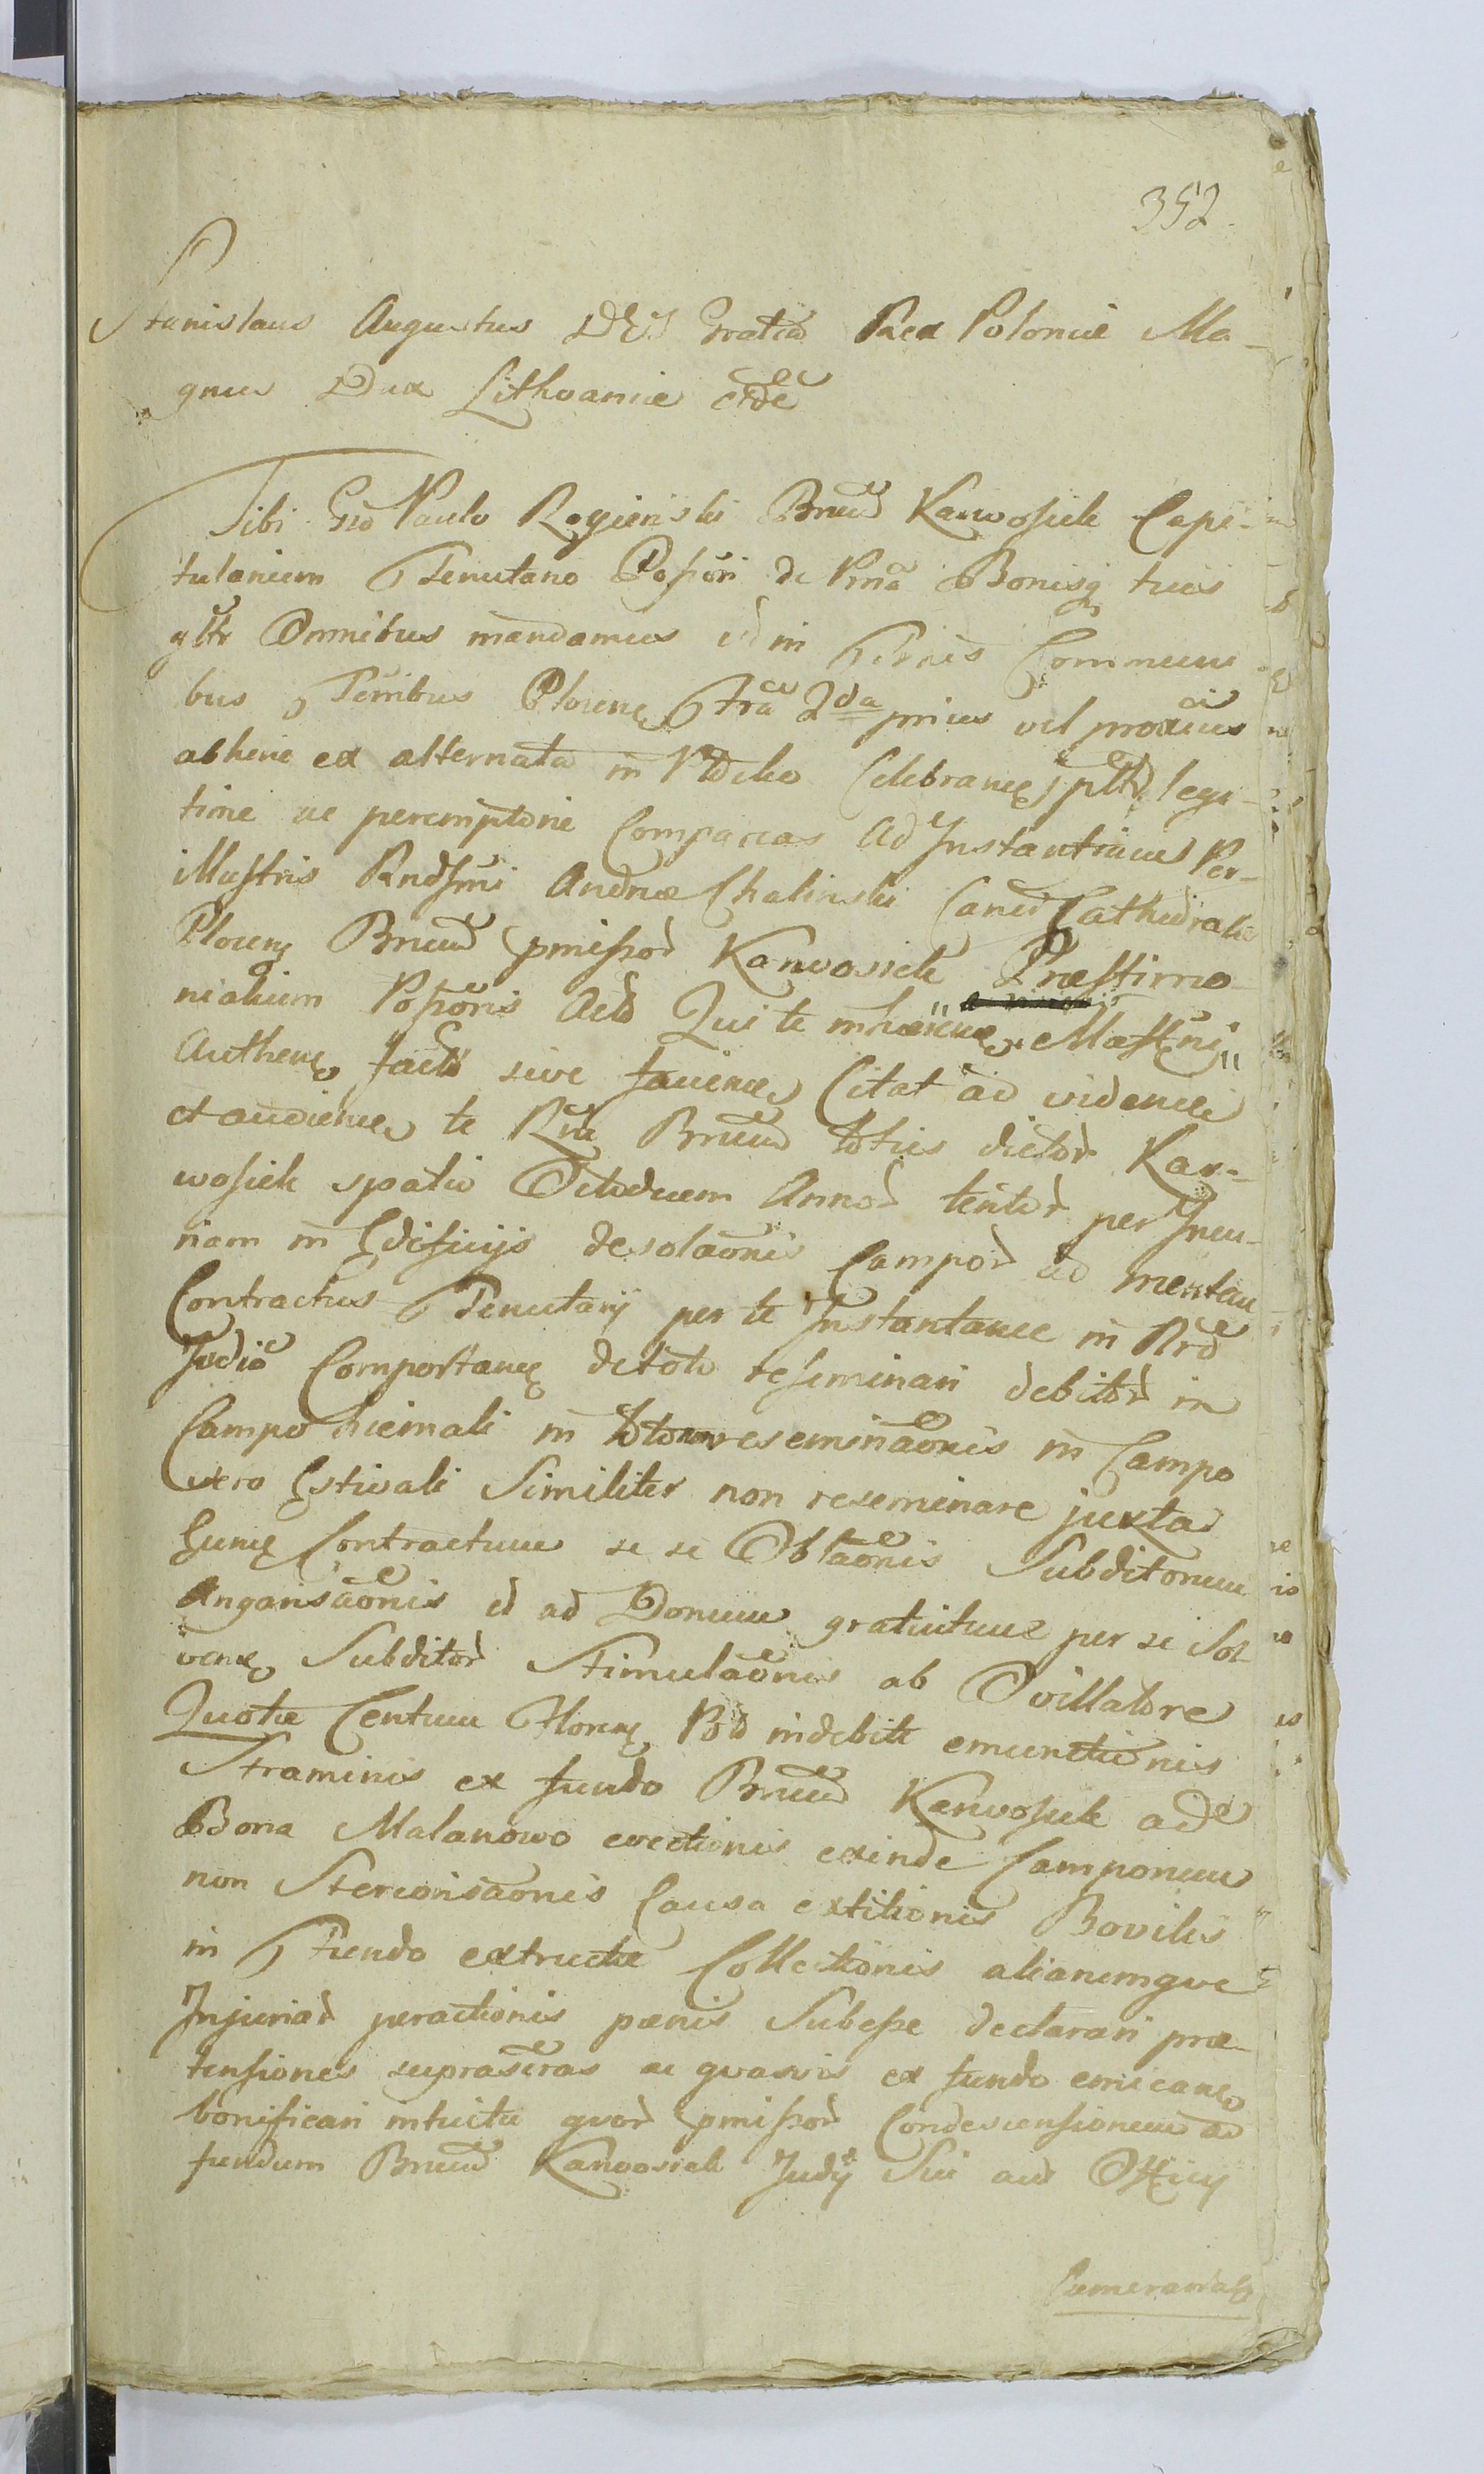 352.
Stanislaus Augustus DEI Gratia Rex Poloniæ Ma-
gnus Dux Lithvaniæ etc
Tibi Gso Paulo Rogienski Bnrum Karwosiek Capi-
tularium Tenutario Possori de Prna Bonisq tuis
gltr Omnibus mandamus ut in Commu
bus Terribus Plocen 2da prius vel proxius
abhinc ex alternata in Celebran legi-
time ac peremptorie Compareas Ad Instantiam Per-
illustris Rndssmi Andreæ Chalinski Canci Cathedralis
Plocen Bnrum pmissor Karwosiek Præstimo
nialium Possoris Act Qui te inhæren
Authen facto sive faciend Citat ad videndum
et audiendum te Bnrum toties dictor Kar-
wosiek spatio Octodecem Annor tentor per Incu-
riam in Edificijs desolaonis Campor ad mentem
Contractus Tenutarij per te Instantance in
Judio Comportan detoto reseminari debitor in
Campo hiemali in toto non reseminaonis in Campo
vero Estivali Similiter non reseminare juxta
Eund Contractum se se Oblaonis Subditorum
Angarisaonis et ad Donum gratuitum per se Sol
ven Subditor Stimulaonis ab Ovillatore
Quotæ Centum Floren Pol indebite emunctionis
Straminis ex fundo Bnrum Karwosiek ad
Bona Malanowo evectionis exinde Camporum
non Stercorisaonis Causa extitionis Bovilis
in Fundo extructæ Collectionis aliarumque
Injuriar peractionis pænis Subesse declarari præ-
tensiones suprascras ac quasvis ex fundo emican
bonificari intuitu quor pmissor Condescensionem ad
fundum Bnrum Karwosiek Judij Sui aut Officij
Camerarial